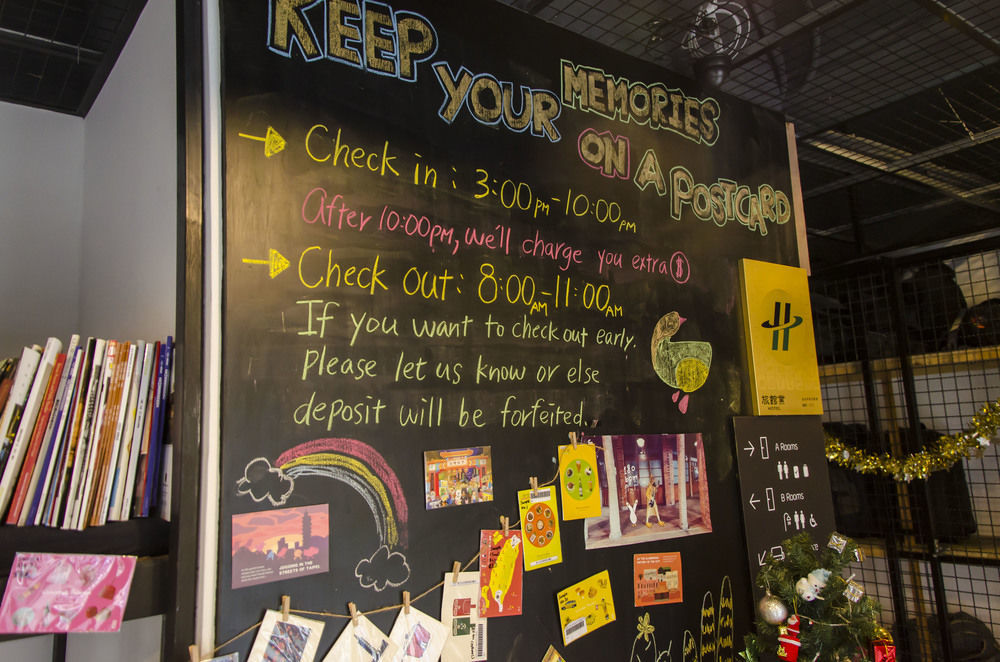 KEEP YOUR MEMORIES
ON A POSTCARD
Check in : 3:00PM-10:00PM
After 10:00pm, we'll charge you extra $
Check out: 8:00AM-11:00AM
If you want to check out early.
Please let us know or else
deposit will be forfeited.
旅館業
HOTEL
A Rooms
B Rooms
JOGGING IN THE
STREETS OF TAIPEI